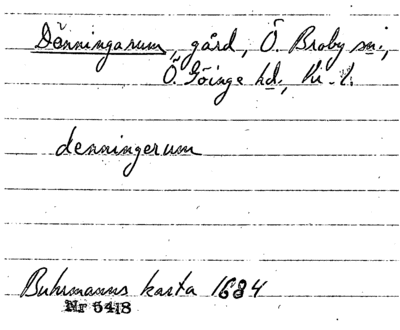 Dönningarum, gård, Ö. Broby sn.,
Ö. Göinge hd., Kr. l.
denningerum
Buhrmanns karta 1684
Nr 5418